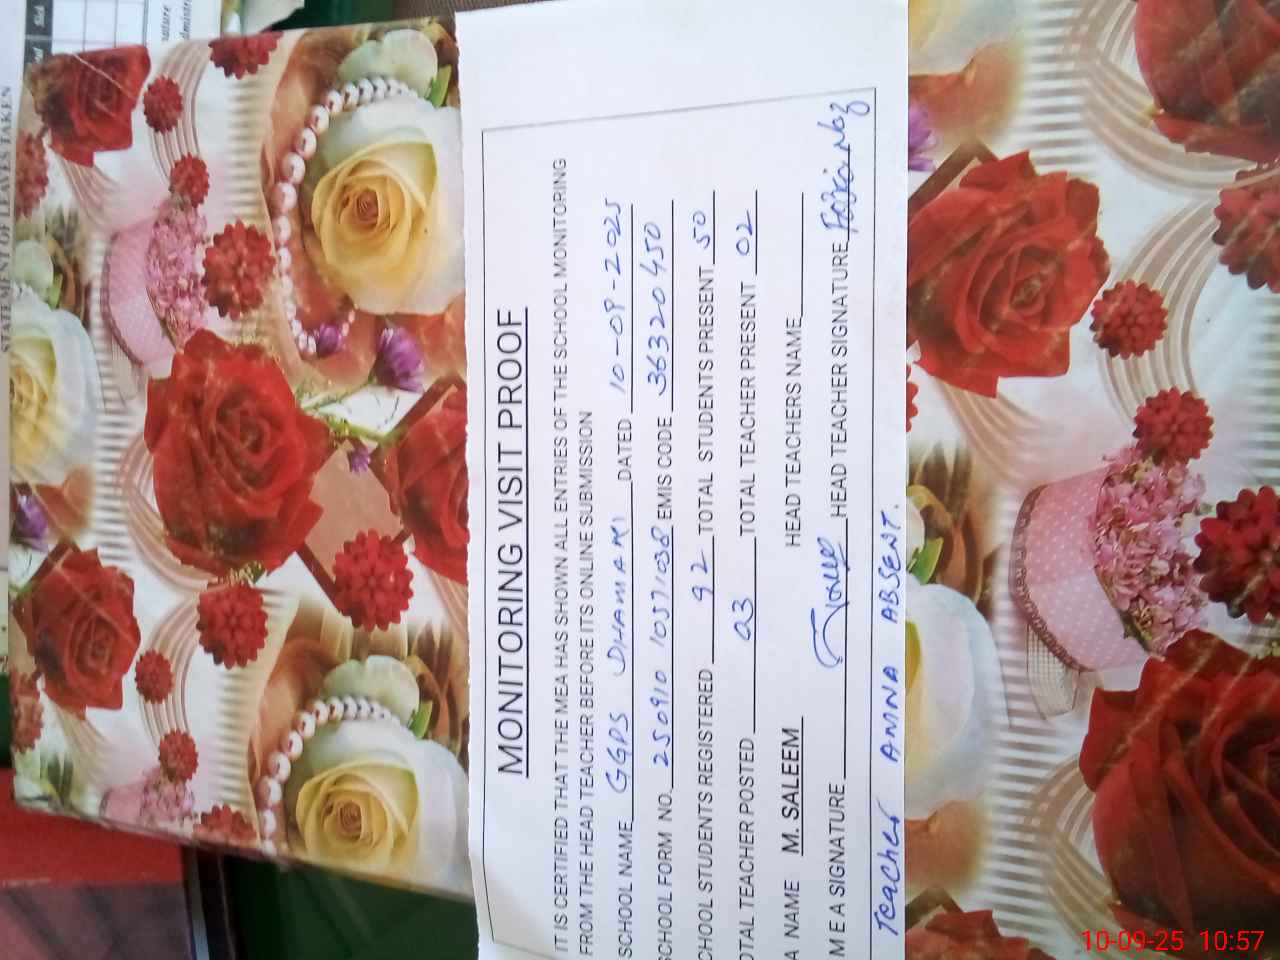 STATEMENT OF LEAVES TAKEN
MONITORING VISIT PROOF
IT IS CERTIFIED THAT THE MEA HAS SHOWN ALL ENTRIES OF THE SCHOOL MONITORING
FROM THE HEAD TEACHER BEFORE ITS ONLINE SUBMISSION
SCHOOL NAME GGPS DHAMAKI DATED 10-09-2025
SCHOOL FORM NO. 250910 10571038 EMIS CODE 36320450
CHOOL STUDENTS REGISTERED 92 TOTAL STUDENTS PRESENT 50
OTAL TEACHER POSTED 03 TOTAL TEACHER PRESENT 02
A NAME M. SALEEM HEAD TEACHERS NAME
M E A SIGNATURE HEAD TEACHER SIGNATURE
Teacher AMNA ABSENT.
10-09-25 10:57